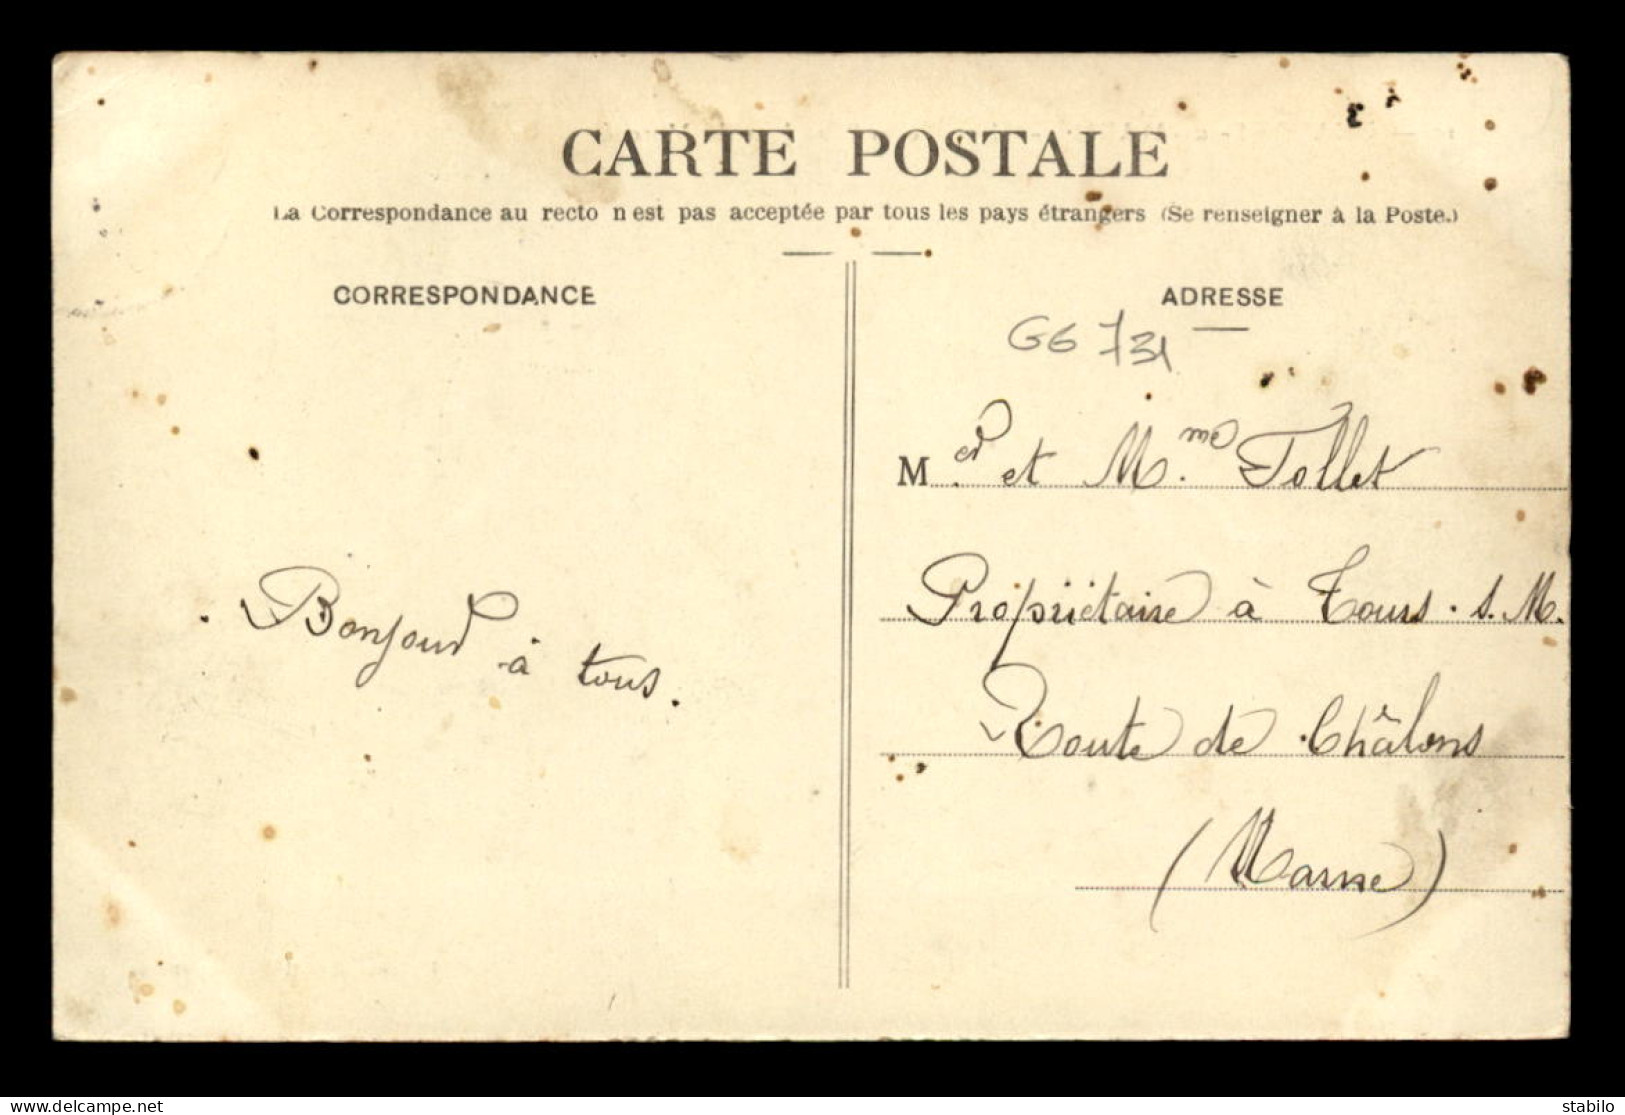 CARTE POSTALE
La Correspondance au recto n'est pas acceptée par tous les pays étrangers (Se renseigner à la Poste.)
CORRESPONDANCE
ADRESSE
G6 731
M.er et M.me Tollet
Propriétaire à Tours. s. M.
Route de Châlons
(Marne)
Bonjour à tous.
www.delcampe.net
stabilo